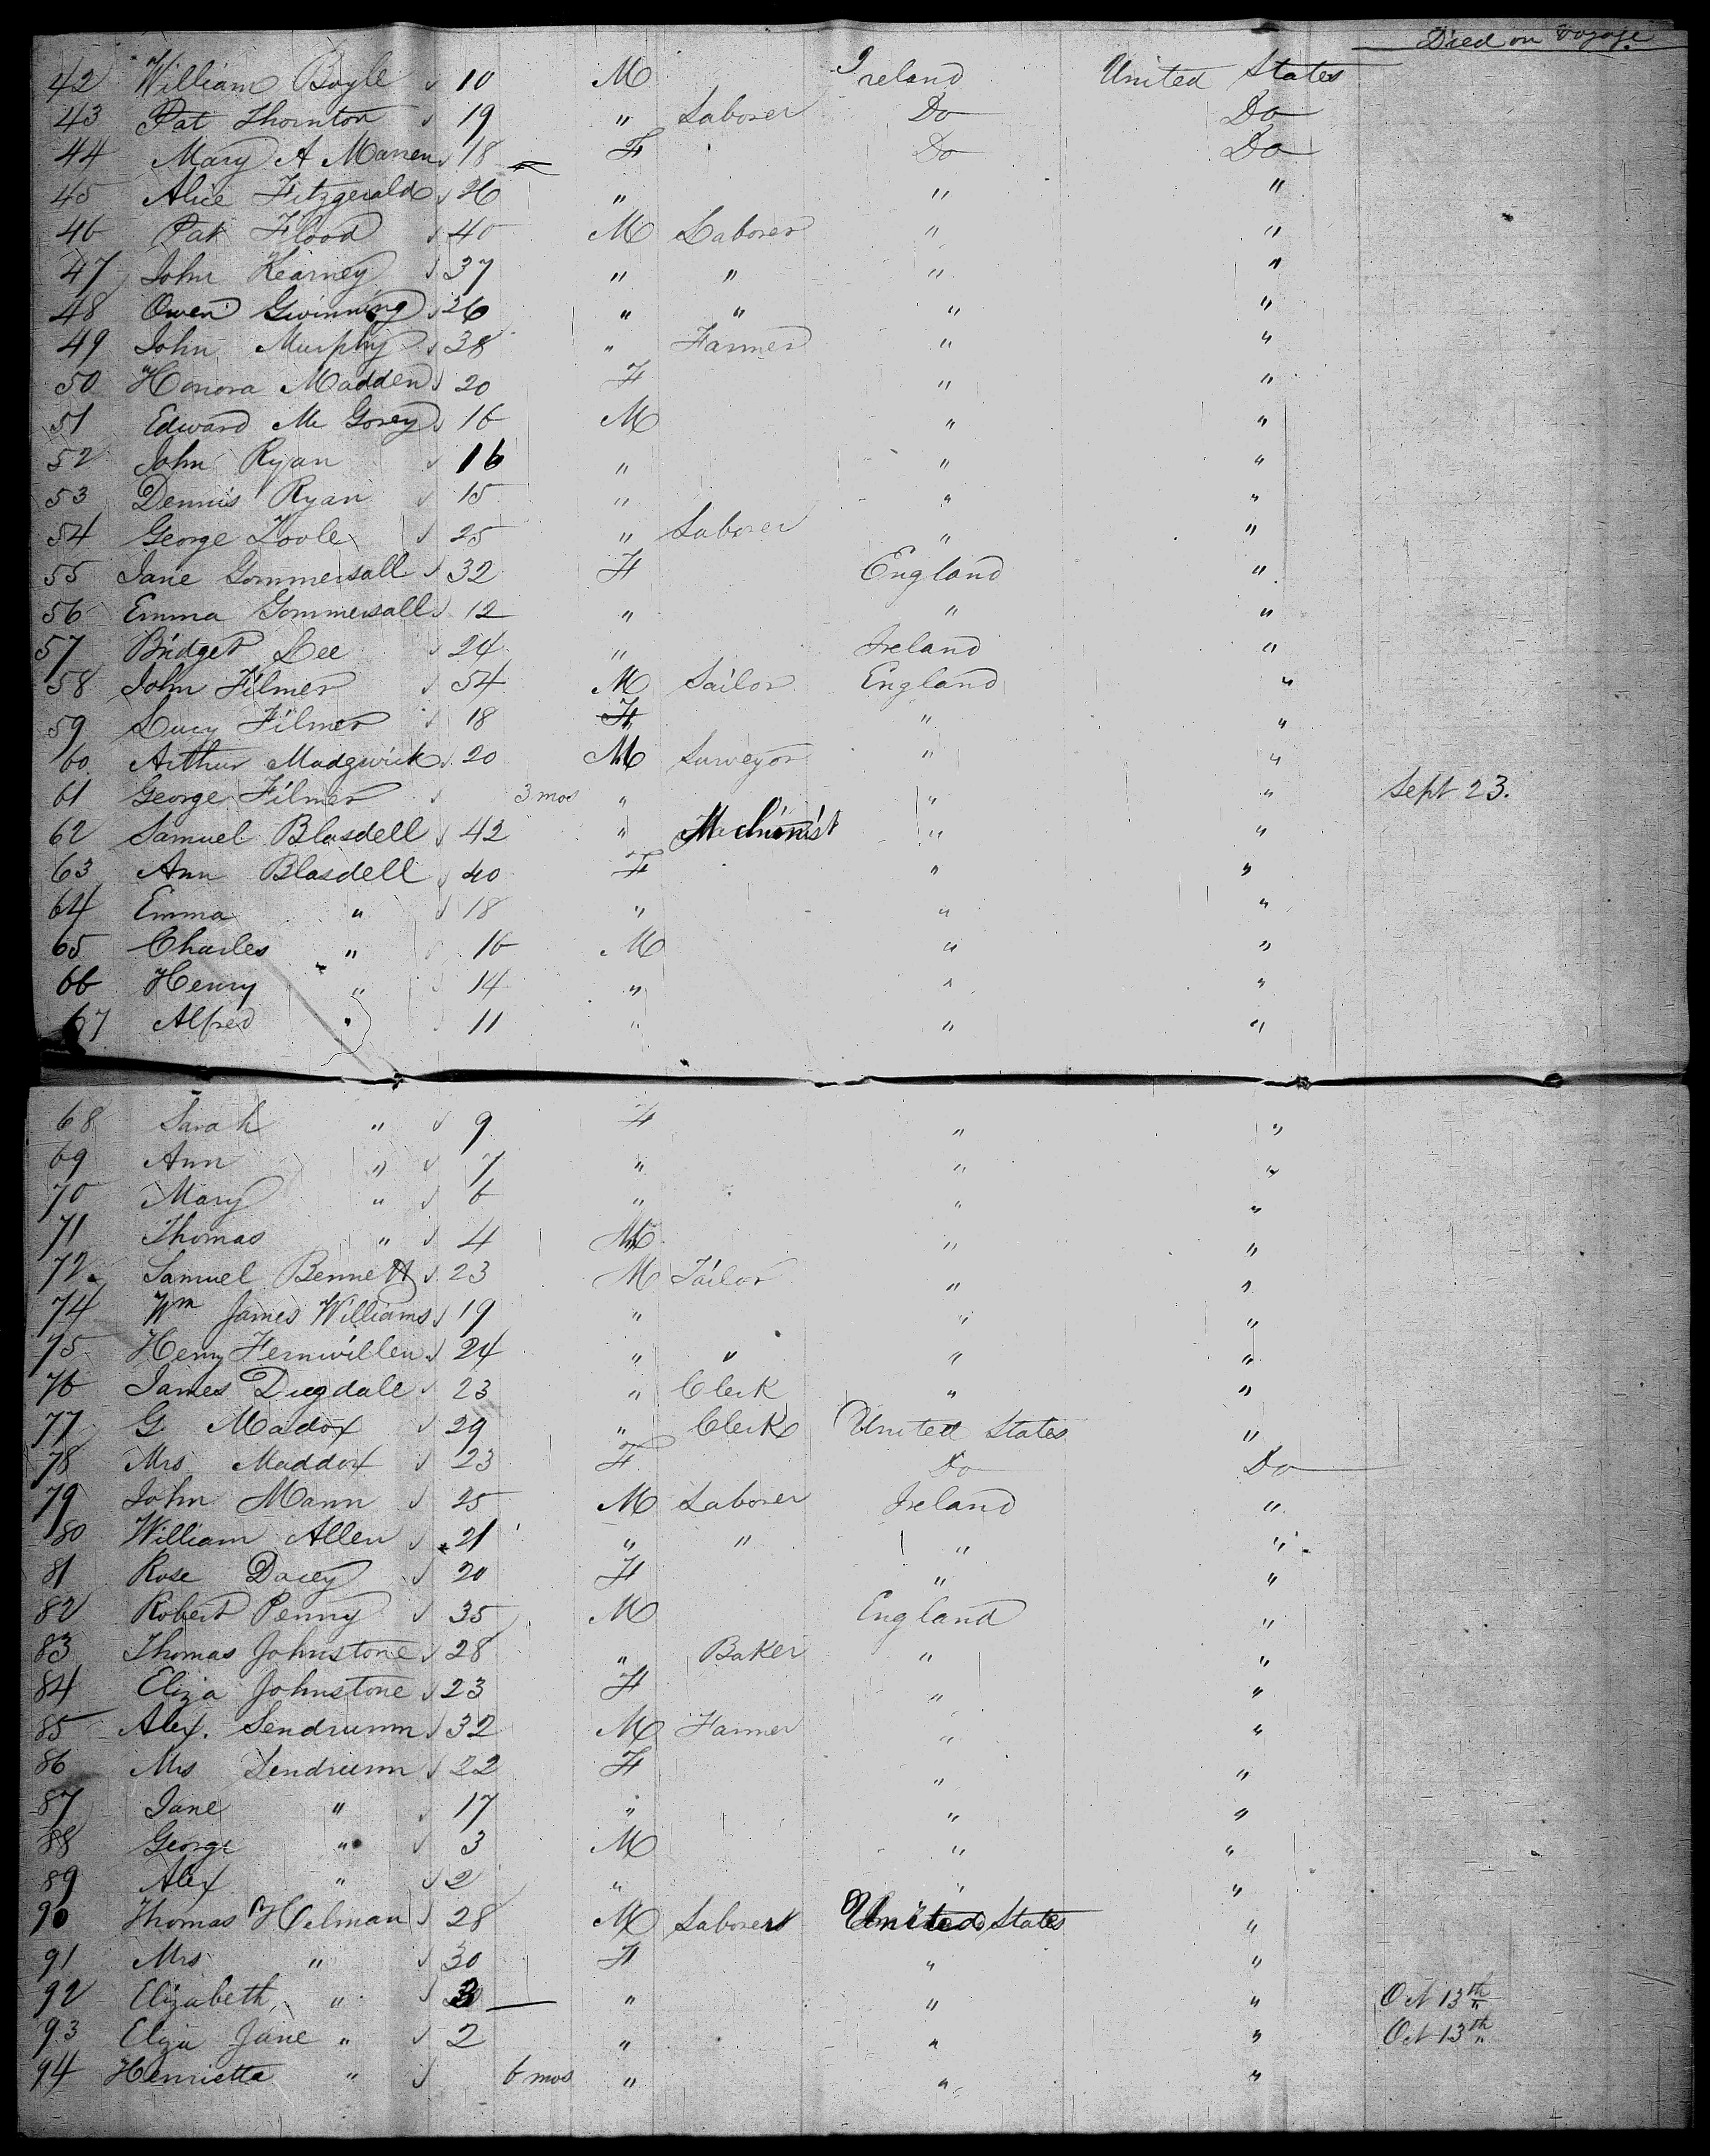 Died on Voyage
42 William Boyle √ 10 M Ireland United States
43 Pat Thornton √ 19 " Laborer Do Do
44 Mary A Marren √ 18 F Do Do
45 Alice Fitzgerald √ 26 " " "
46 Pat Flood √ 40 M Laborer " "
47 John Kearney √ 37 " " " "
48 Owen Gwinning √ 26 " " " "
49 John Murphy √ 38 " Farmer " "
50 Honora Madden √ 20 F " "
51 Edward Mc Gorey √ 16 M " "
52 John Ryan √ 16 " " "
53 Dennis Ryan √ 15 " " "
54 George Toole √ 25 " Laborer " "
55 Jane Gommersall √ 32 F England "
56 Emma Gommersall √ 12 " " "
57 Bridget Lee √ 24 " Ireland "
58 John Filmer √ 54 M Sailor England "
59 Lucy Filmer √ 18 F " "
60 Arthur Madgwick √ 20 M Surveyor " "
61 George Filmer √ 3 mos " " " Sept 23.
62 Samuel Blasdell √ 42 " Mechinist " "
63 Ann Blasdell √ 40 F " "
64 Emma " √ 18 " " "
65 Charles " √ 16 M " "
66 Henry " √ 14 " " "
67 Alfred " √ 11 " " "
68 Sarah " √ 9 F " "
69 Ann " √ 7 " " "
70 Mary " √ 6 " " "
71 Thomas " √ 4 M " "
72 Samuel Bennett √ 23 M Tailor " "
74 Wm James Williams √ 19 " " "
75 Henry Fernvillen √ 24 " " " "
76 James Dugdale √ 23 " Clerk " "
77 G. Madox √ 29 " Clerk United States "
78 Mrs Maddox √ 23 F Do Do
79 John Mann √ 25 M Laborer Ireland "
80 William Allen √ 21 " " " "
81 Rose Dacey √ 20 F " "
82 Robert Penny √ 35 M England "
83 Thomas Johnstone √ 28 " Baker " "
84 Eliza Johnstone √ 23 F " "
85 Alex. Lendrumm √ 32 M Farmer " "
86 Mrs Lendrumm √ 22 F " "
87 Jane " √ 17 " " "
88 George " √ 3 M " "
89 Alex " √ 2 " " "
90 Thomas Helman √ 28 M Laborer United States "
91 Mrs " √ 30 F " "
92 Elizabeth " √ 3 " " " Oct 13th
93 Eliza Jane " √ 2 " " " Oct 13th
94 Henrietta " √ 6 mos " " "